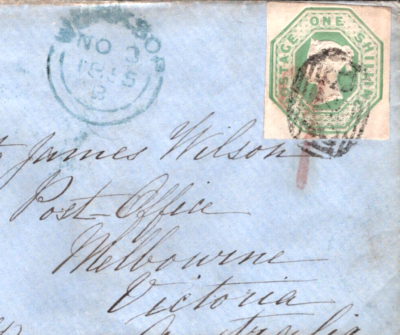 NO 3
1855
B
POSTAGE ONE SHILLING
James Wilson
Post-Office
Melbourne
Victoria
Australia